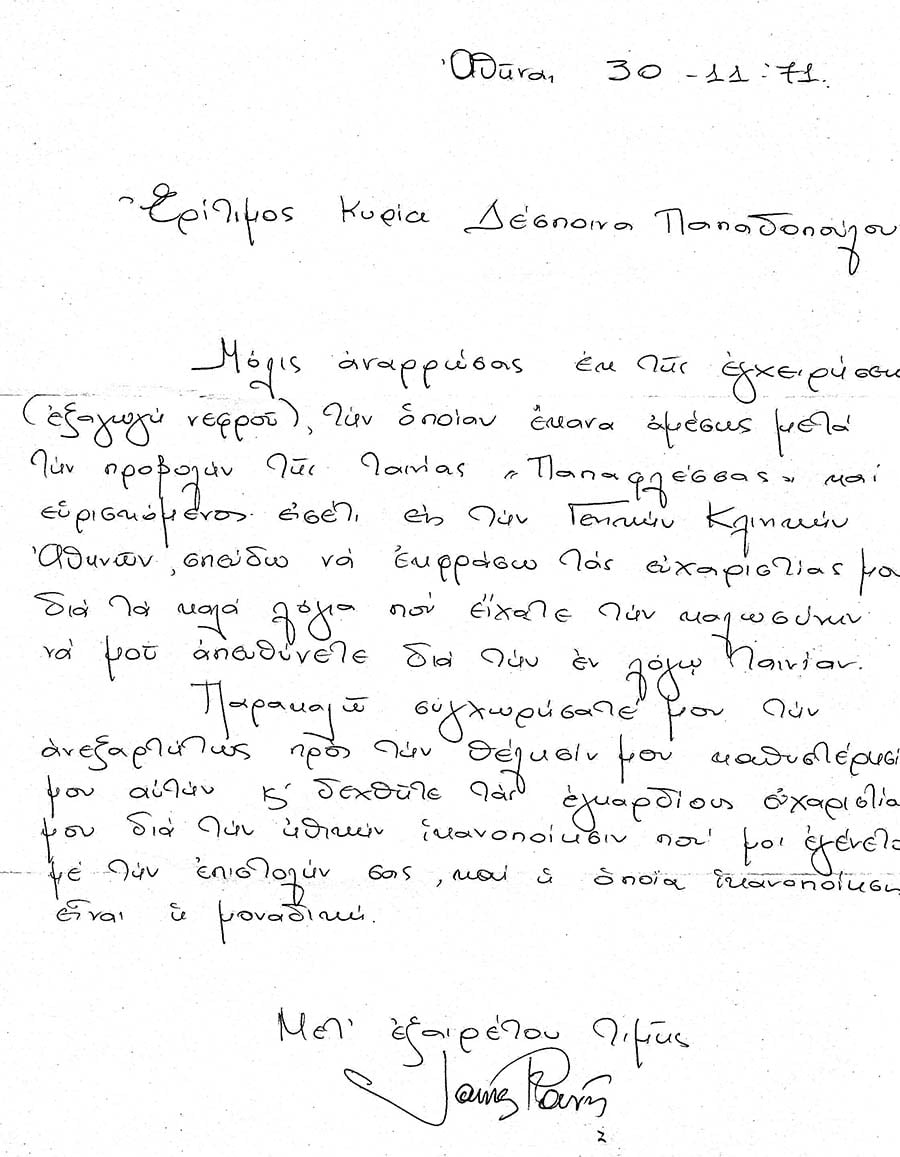 Ἀθῆναι 30-11-71.
Ἐρίτιμος Κυρία Δέσποινα Παπαδοπούλου
Μόλις ἀναρρώσας ἐκ τῆς ἐγχειρήσεω
(ἐξαγωγή νεφροῦ), τήν ὁποίαν ἔκανα ἀμέσως μετά
τήν προβολήν τῆς ταινίας «Παπαφλέσσας» καί
εὑρισκόμενος εἰσέτι εἰς τήν Γενικήν Κλινικήν
Ἀθηνῶν, σπεύδω νά ἐκφράσω τάς εὐχαριστίας μο
διά τά καλά λόγια πού εἴχατε τήν καλωσύνην
νά μοῦ ἀπευθύνετε διά τήν ἐν λόγῳ ταινίαν.
Παρακαλῶ συγχωρήσατέ μου τήν
ἀνεξαρτήτως πρός τήν θέλησίν μου καθυστέρησί
μου αὐτήν κ' δεχθῆτε τάς ἐγκαρδίους εὐχαριστία
μου διά τήν ἠθικήν ἱκανοποίησιν πού μοι ἐγένετο
μέ τήν ἐπιστολήν σας, καί ἡ ὁποία ἱκανοποίηση
εἶναι ἡ μοναδική.
Μετ' ἐξαιρέτου τιμῆς
2